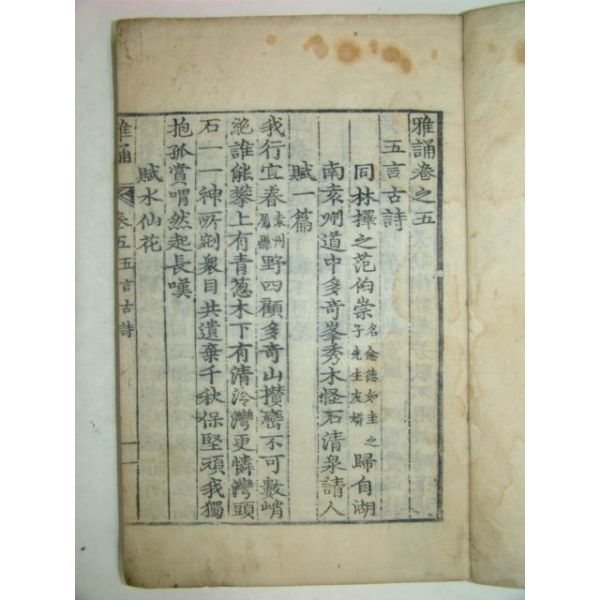 雅誦卷之五
五言古詩
同林擇之范伯崇名念德如圭之子先生友婿歸自湖
南袁州道中多奇峯秀木怪石清泉請人
賦一篇
我行宜春袁州屬縣野四顧多奇山攢巒不可數峭
絶誰能攀上有青葱木下有清泠灣更憐灣頭
石一一神所剜衆目共遺棄千秋保堅頑我獨
抱孤賞喟然起長嘆
賦水仙花
雅誦 卷五 五言古詩 一